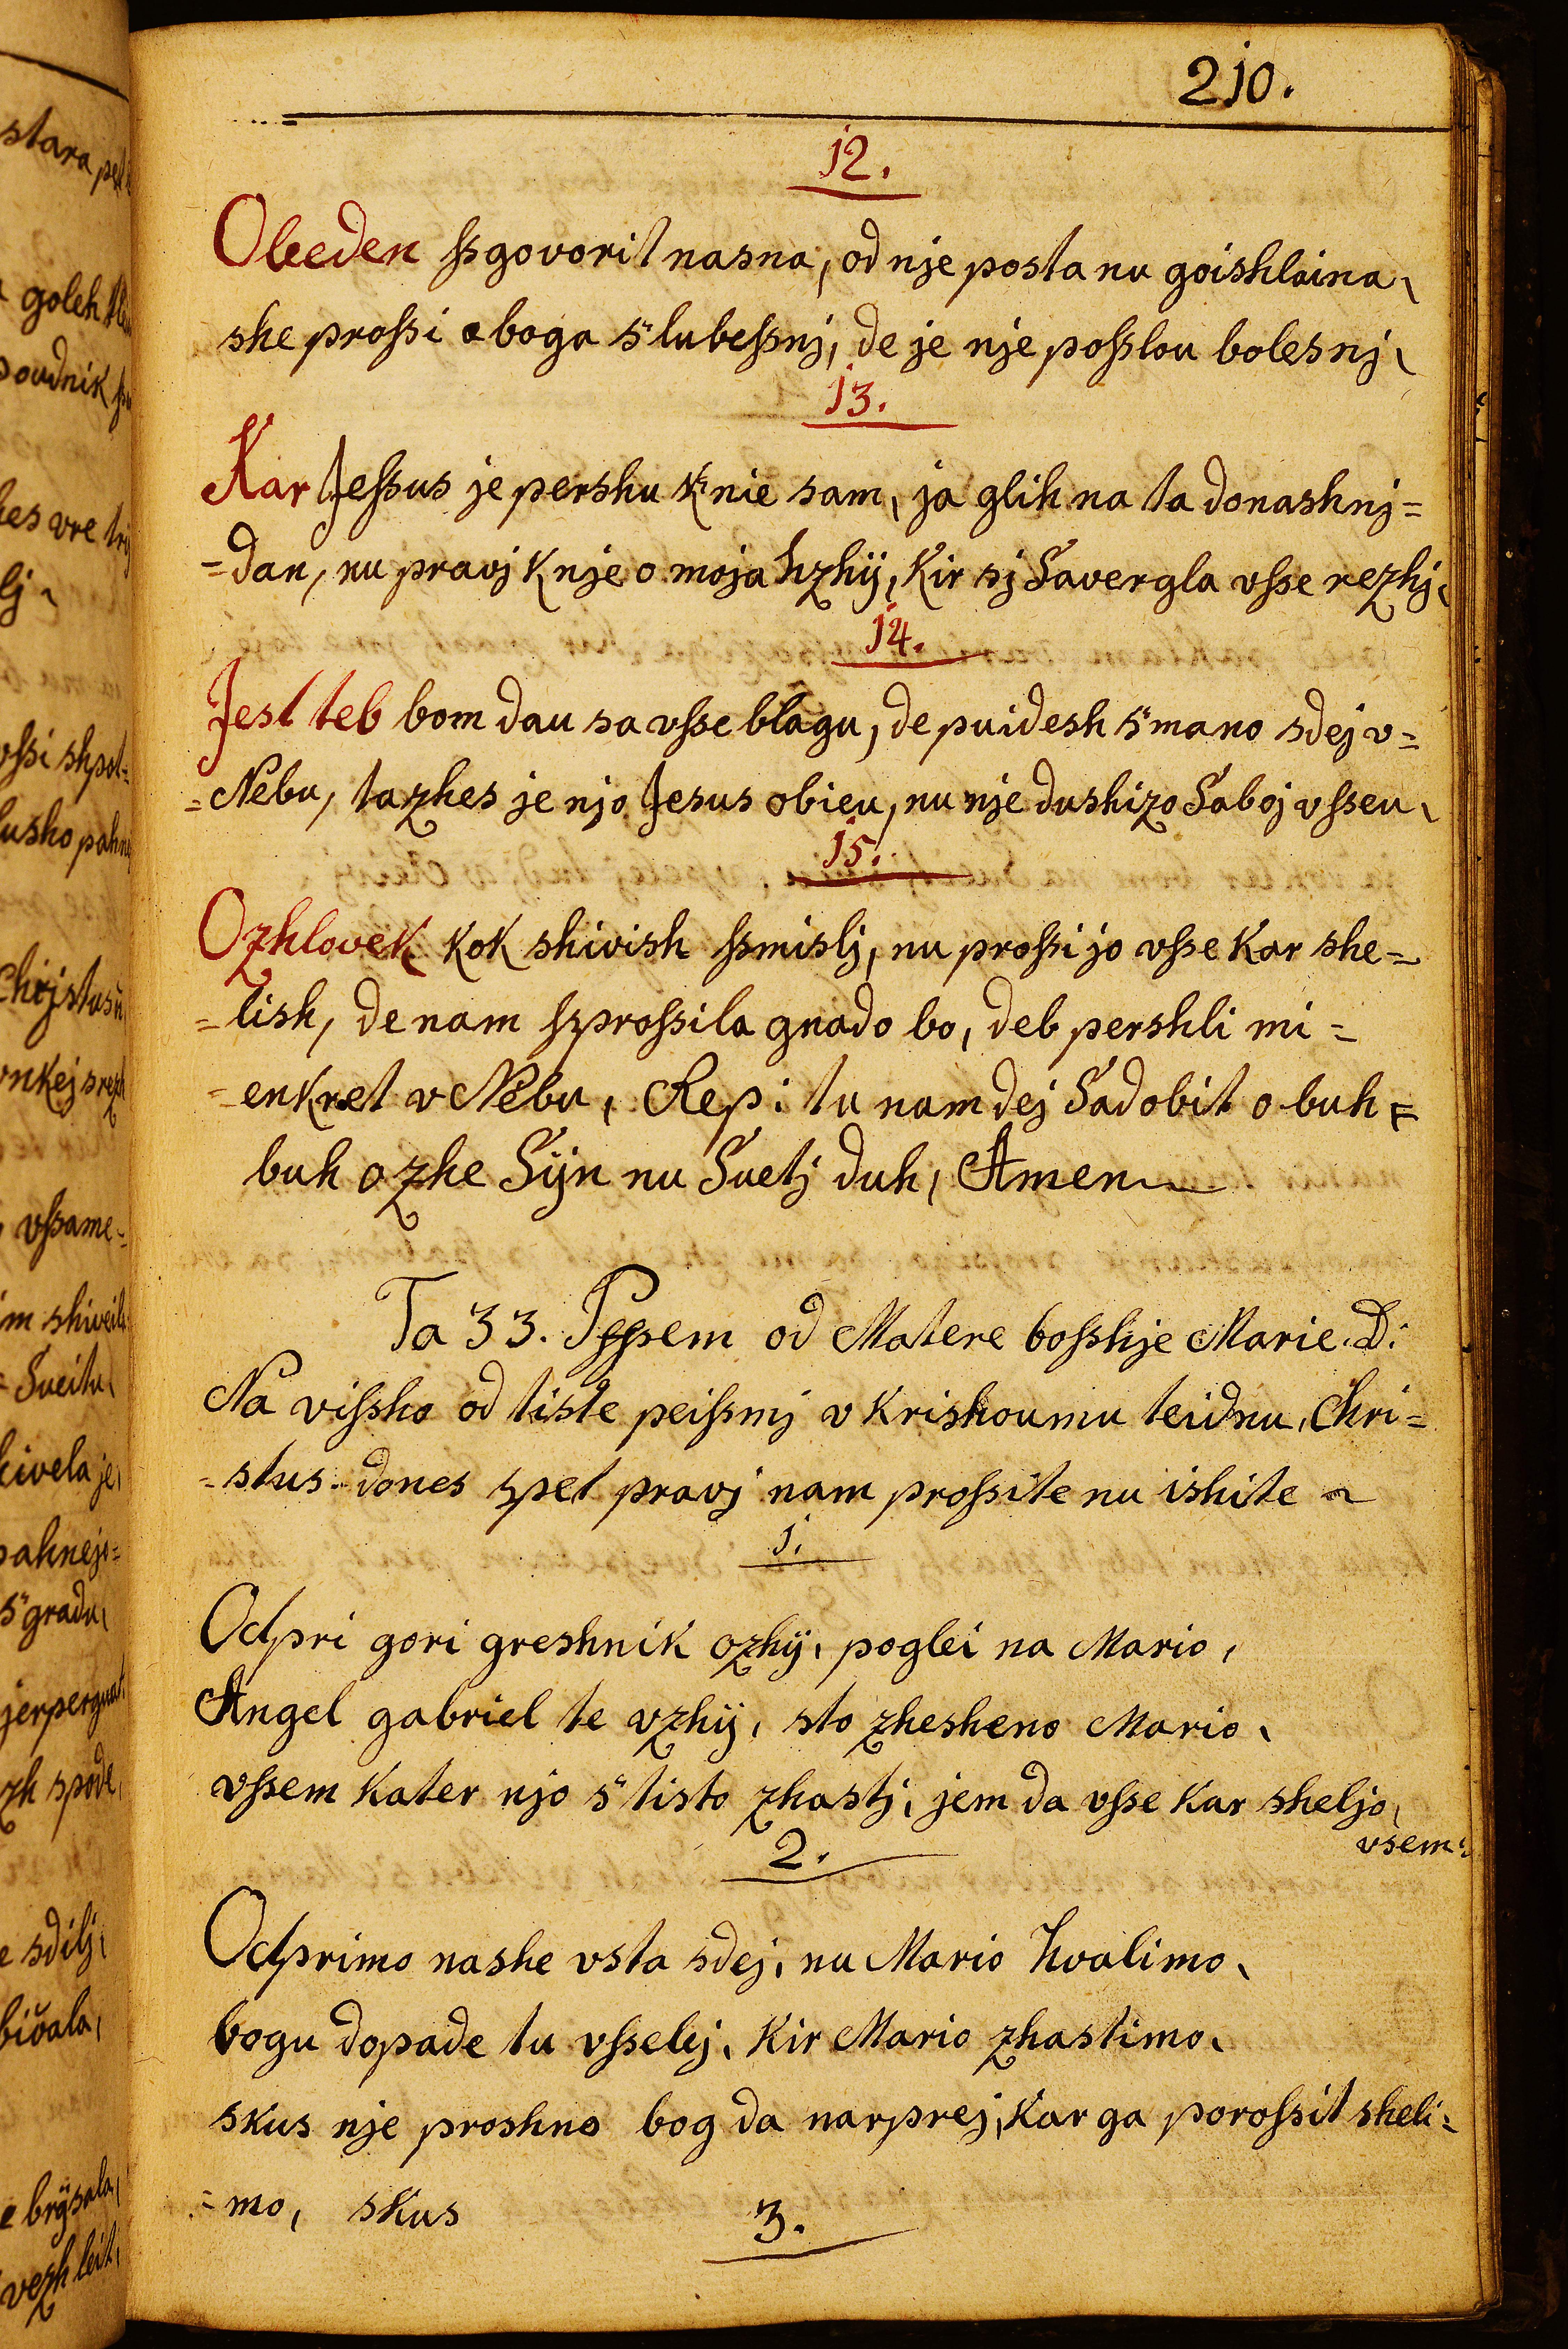 210.
12.
Obeden ſsgovorit nasna, od nje posta nu goishlaina,
she proſsi oboga s"lubeſsnj, de je nje poſslou bolesnj,
13.
Kar Jeſsus je pershu k"nie sam, ja glih na ta donashnj=
=dan, nu pravj k nje o moja hzhÿ, kir sj Savergla vſse rezhj,
14.
Jest teb bom dau sa vſse blagu, de puidesh s"mano sdej v=
=Nebu, tazhes je njo Jesus obieu, nu nje dushizo Saboj vſseu,
15.
Ozhlovek kok shivish ſsmislj, nu proſsi jo vſse kar she=
=lish, de nam ſsproſsila gnado bo, deb pershli mi=
=enkret v Nebu, Rep: tu nam dej Sadobit o buh=
buh ozhe Sÿn nu Svetj duh, Amen
Ta 33. Pſſsem od Matere boſshje Marie. D:
Na viſsho od tiste peiſsmj v krishoumu teidnu, Chri=
=stus dones spet pravj nam proſsite nu ishite
1.
Odpri gori greshnik ozhÿ, poglei na Mario,
Angel gabriel te vzhÿ, sto zhesheno Mario,
vſsem kater njo s"tisto zhastj, jem da vſse kar sheljo,
vsem:
2.
Odprimo nashe vsta sdej, nu Mario hvalimo,
bogu dopade tu vſselej, kir Mario zhastimo,
skus nje proshno bog da narprej, kar ga poroſsit sheli=
=mo, skus
3.